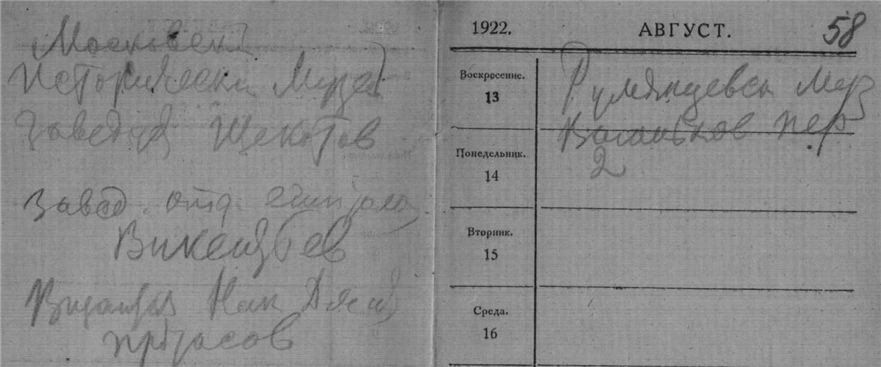 Московский
Исторически Музей
Заведущ Щекотов
Завед. отд.
Викентьев
Ник
Протасов
1922.
АВГУСТ.
58
Воскресение.
13
Румянцевск Муз
Ваганьков пер
2
Понедельник.
14
Вторник.
15
Среда.
16